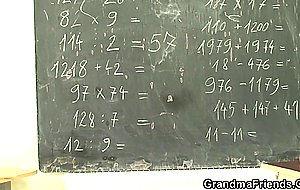 82 9 =
114 : 2 = 57
1218 + 42 =
97 × 74 =
128 : 7 =
12 : 9 =
187 × 17 =
110 + 1200 =
1979 + 1974 =
18 - 476 =
976 - 1179 =
145 + 147 + 41
11 - 11 =
GrandmaFriends.C